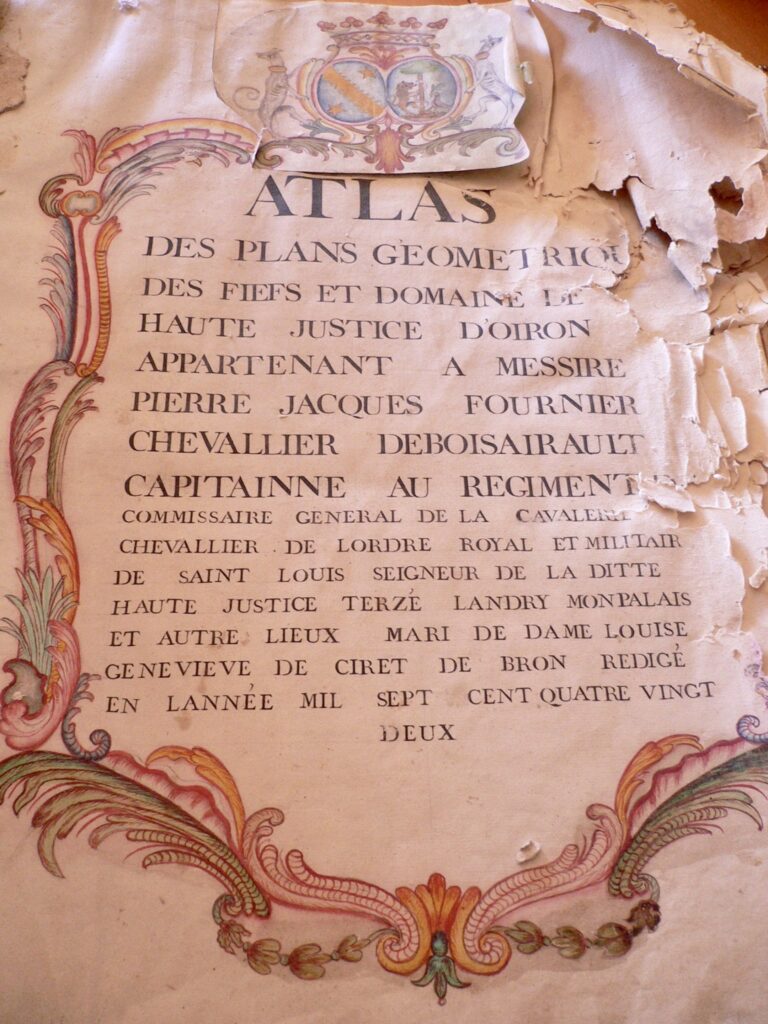 ATLAS
DES PLANS GEOMETRIQU
DES FIEFS ET DOMAINE DE
HAUTE JUSTICE D'OIRON
APPARTENANT A MESSIRE
PIERRE JACQUES FOURNIER
CHEVALLIER DEBOISAIRAULT
CAPITAINNE AU REGIMENT
COMMISSAIRE GENERAL DE LA CAVALERIE
CHEVALLIER DE LORDRE ROYAL ET MILITAIR
DE SAINT LOUIS SEIGNEUR DE LA DITTE
HAUTE JUSTICE TERZÉ LANDRY MONPALAIS
ET AUTRE LIEUX MARI DE DAME LOUISE
GENEVIEVE DE CIRET DE BRON REDIGÉ
EN LANNÉE MIL SEPT CENT QUATRE VINGT
DEUX